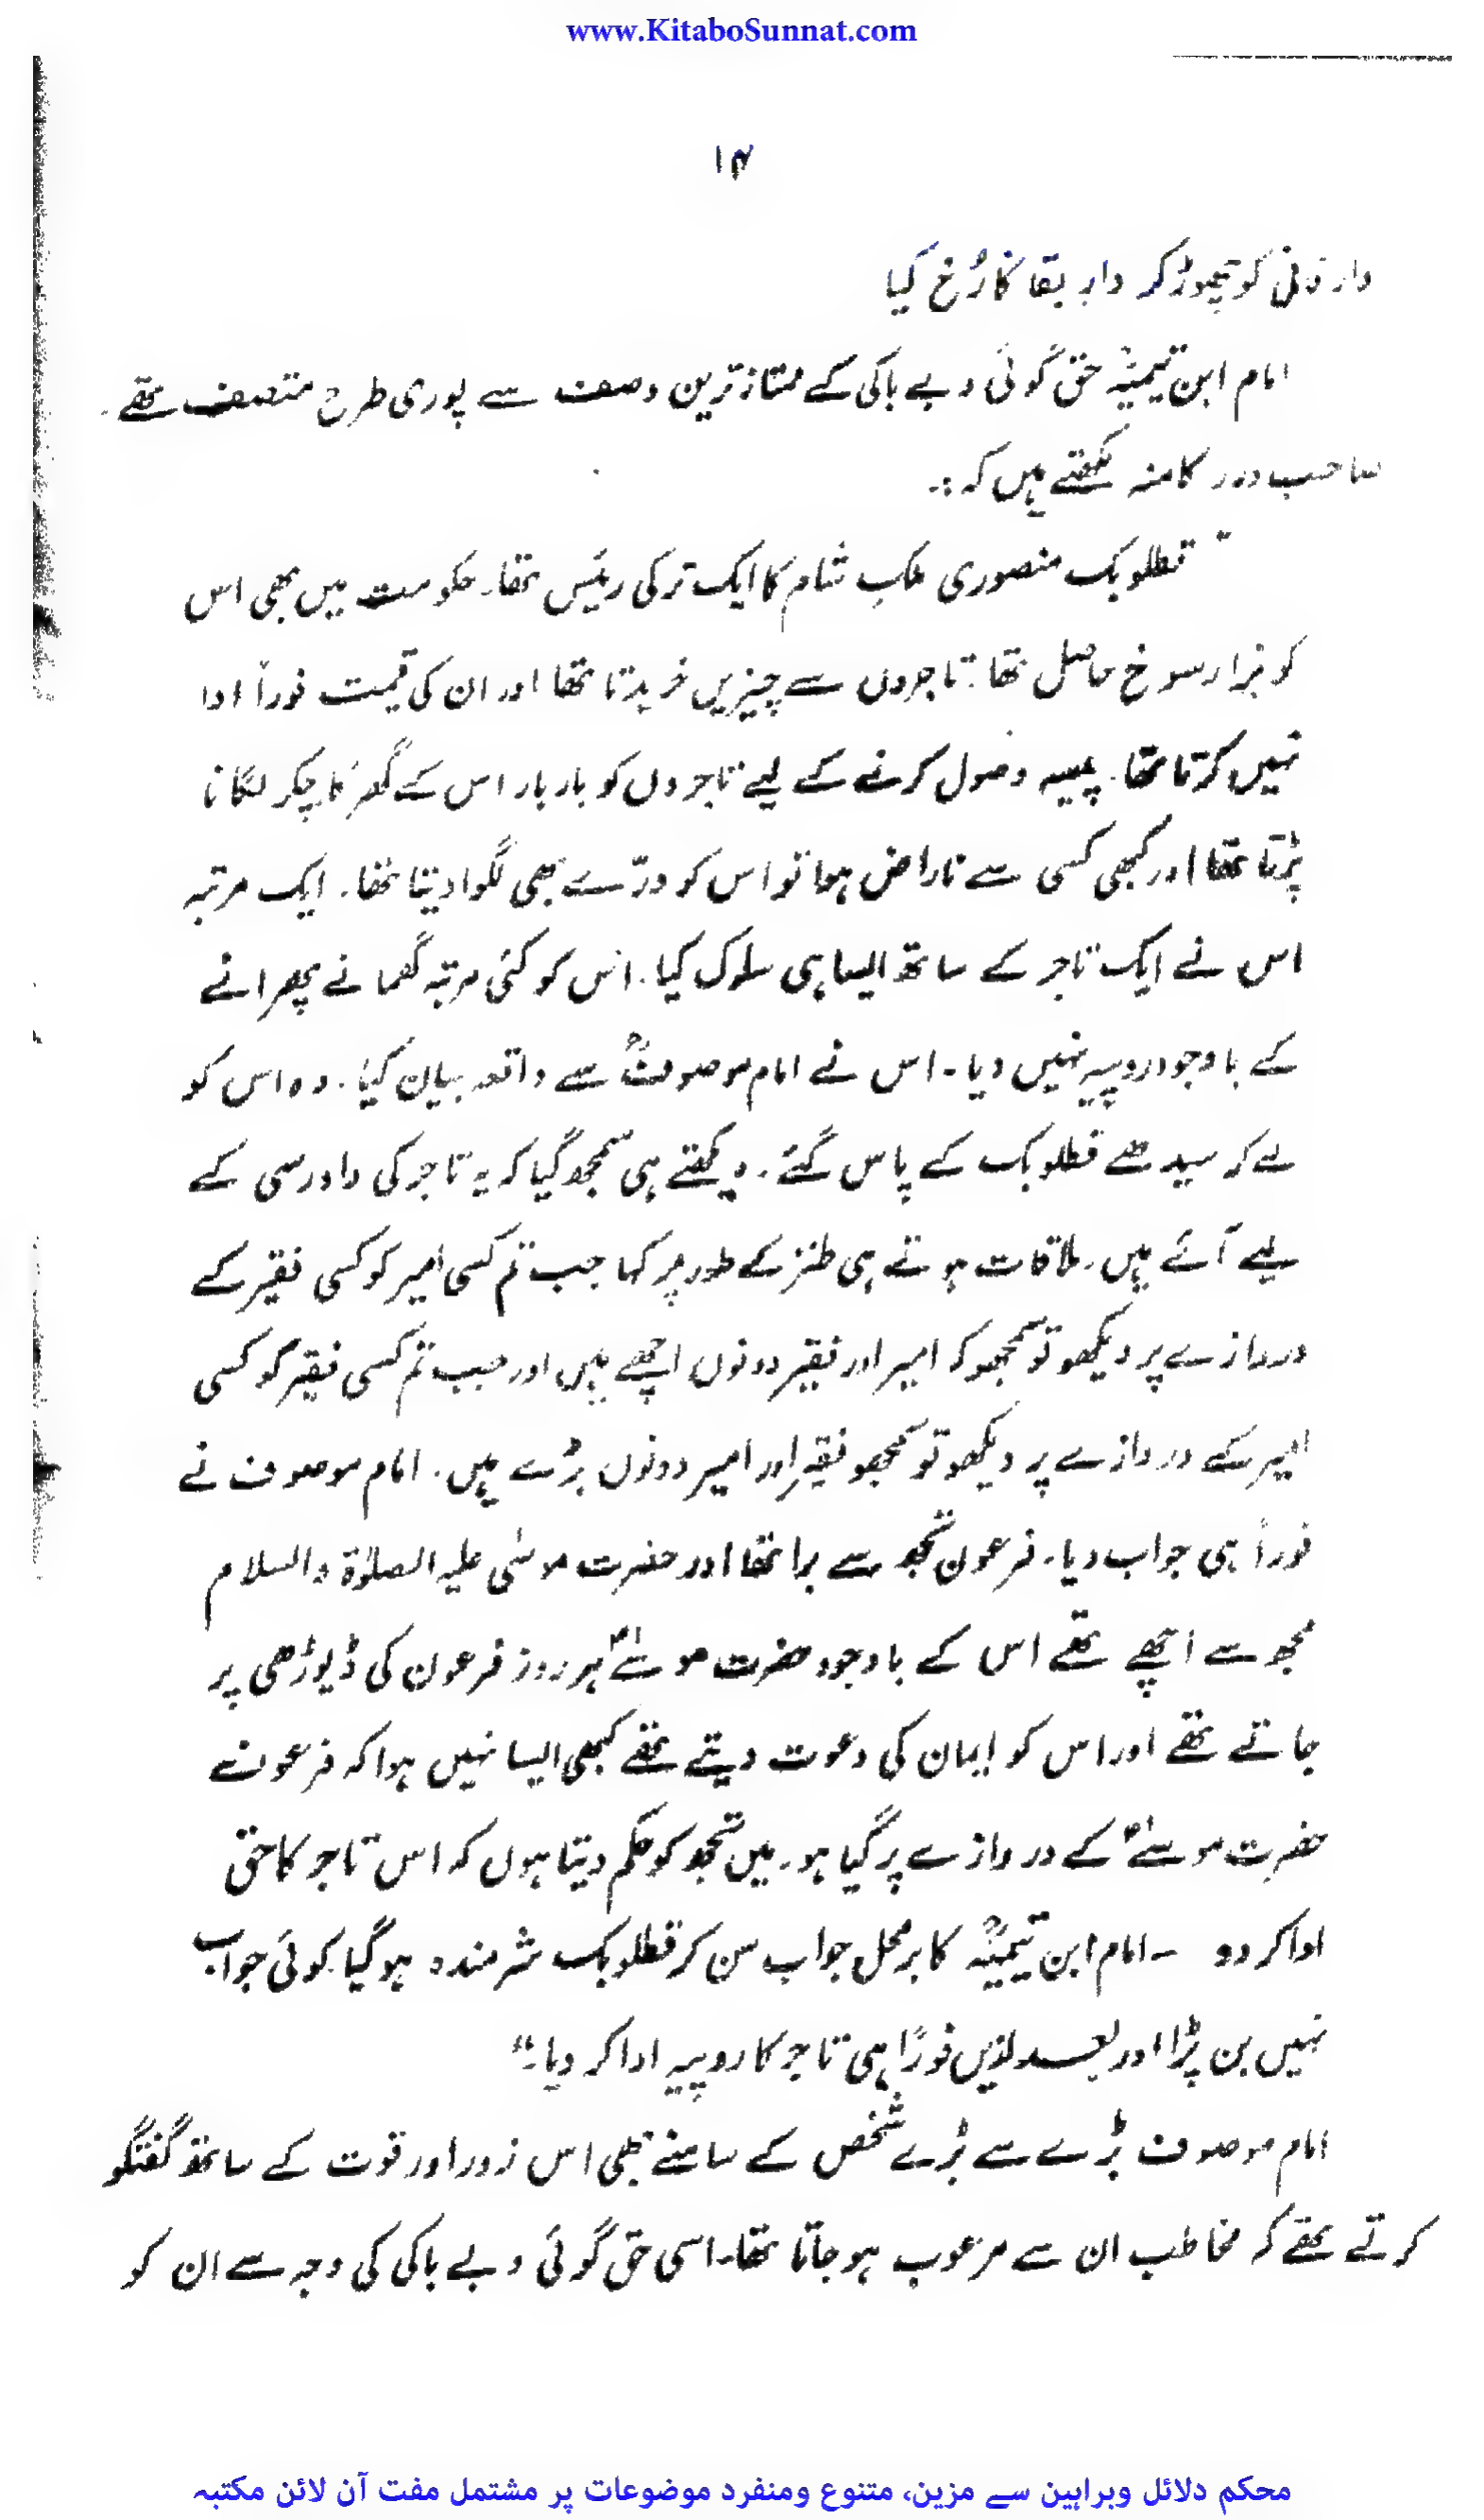 www.KitaboSunnat.com
۱۴
دار فانی کو چھوڑ کر دار بقا کا رُخ کیا
امام ابن تیمیہؒ حق گوئی و بے باکی کے ممتاز ترین وصف سے پوری طرح متصف تھے۔
صاحب درر کامنہ لکھتے ہیں کہ:۔
"قطلوبک منصوری ملکِ شام کا ایک ترکی رئیس تھا۔ حکومت میں بھی اس
کو بڑا رسوخ حاصل تھا۔ تاجروں سے چیزیں خریدتا تھا اور ان کی قیمت فوراً ادا
نہیں کرتا تھا۔ پیسہ وصول کرنے کے لیے تاجروں کو بار بار اس کے گھر کا چکر لگانا
پڑتا تھا اور کبھی کسی سے ناراض ہوا تو اس کو درّے بھی لگوا دیتا تھا۔ ایک مرتبہ
اس نے ایک تاجر کے ساتھ ایسا ہی سلوک کیا۔ اس کو کئی مرتبہ گھمانے پھرانے
کے باوجود روپیہ نہیں دیا۔ اس نے امام موصوفؒ سے واقعہ بیان کیا۔ وہ اس کو
لے کر سیدھے قطلوبک کے پاس گئے۔ دیکھتے ہی سمجھ گیا کہ یہ تاجر کی دادرسی کے
لیے آئے ہیں۔ ملاقات ہوتے ہی طنز کے طور پر کہا جب تم کسی امیر کو کسی فقیر کے
دروازے پر دیکھو تو سمجھو کہ امیر اور فقیر دونوں اچھے ہیں اور جب تم کسی فقیر کو کسی
امیر کے دروازے پر دیکھو تو سمجھو فقیر اور امیر دونوں بُرے ہیں۔ امام موصوف نے
فوراً ہی جواب دیا۔ فرعون تجھ سے برا تھا اور حضرت موسٰی علیہ الصلوٰۃ والسلام
مجھ سے اچھے تھے اس کے باوجود حضرت موسےٰؑ ہر روز فرعون کی ڈیوڑھی پر
جاتے تھے اور اس کو ایمان کی دعوت دیتے تھے کبھی ایسا نہیں ہوا کہ فرعون
حضرت موسےٰؑ کے دروازے پر گیا ہو۔ میں تجھ کو حکم دیتا ہوں کہ اس تاجر کا حق
ادا کر دو ۔ امام ابن تیمیہؒ کا برمحل جواب سن کر قطلوبک شرمندہ ہو گیا۔ کوئی جواب
نہیں بن پڑا اور بعد ازیں فوراً ہی تاجر کا روپیہ ادا کر دیا۔"
امام موصوف بڑے سے بڑے شخص کے سامنے بھی اس زور اور قوت کے ساتھ گفتگو
کرتے تھے کہ مخاطب ان سے مرعوب ہو جاتا تھا۔ اسی حق گوئی و بے باکی کی وجہ سے ان کو
محکم دلائل وبراہین سے مزین، متنوع ومنفرد موضوعات پر مشتمل مفت آن لائن مکتبہ